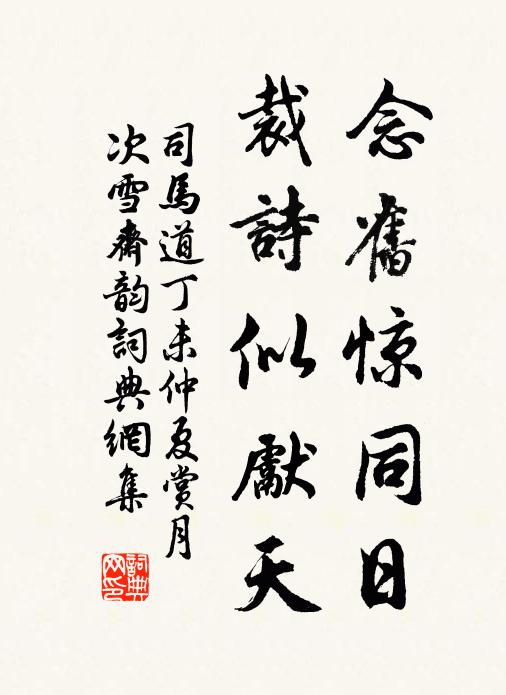 念舊惊同日
裁詩似獻天
司馬道丁未仲夏赏月
次雪齋韵詞典網集
詞典
网印